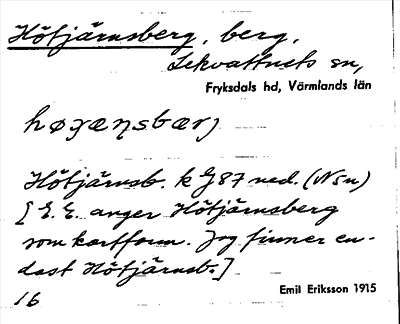 Hötjärnsberg, berg,
Lekvattnets sn,
Fryksdals hd, Värmlands län
høꭓæɳsbærj
Hötjärnsb. k G87 ned. (Nsn)
[E. E. anger Hötjärnsberg
som kartform. Jag finner en-
dast Hötjärnsb.]
16
Emil Eriksson 1915